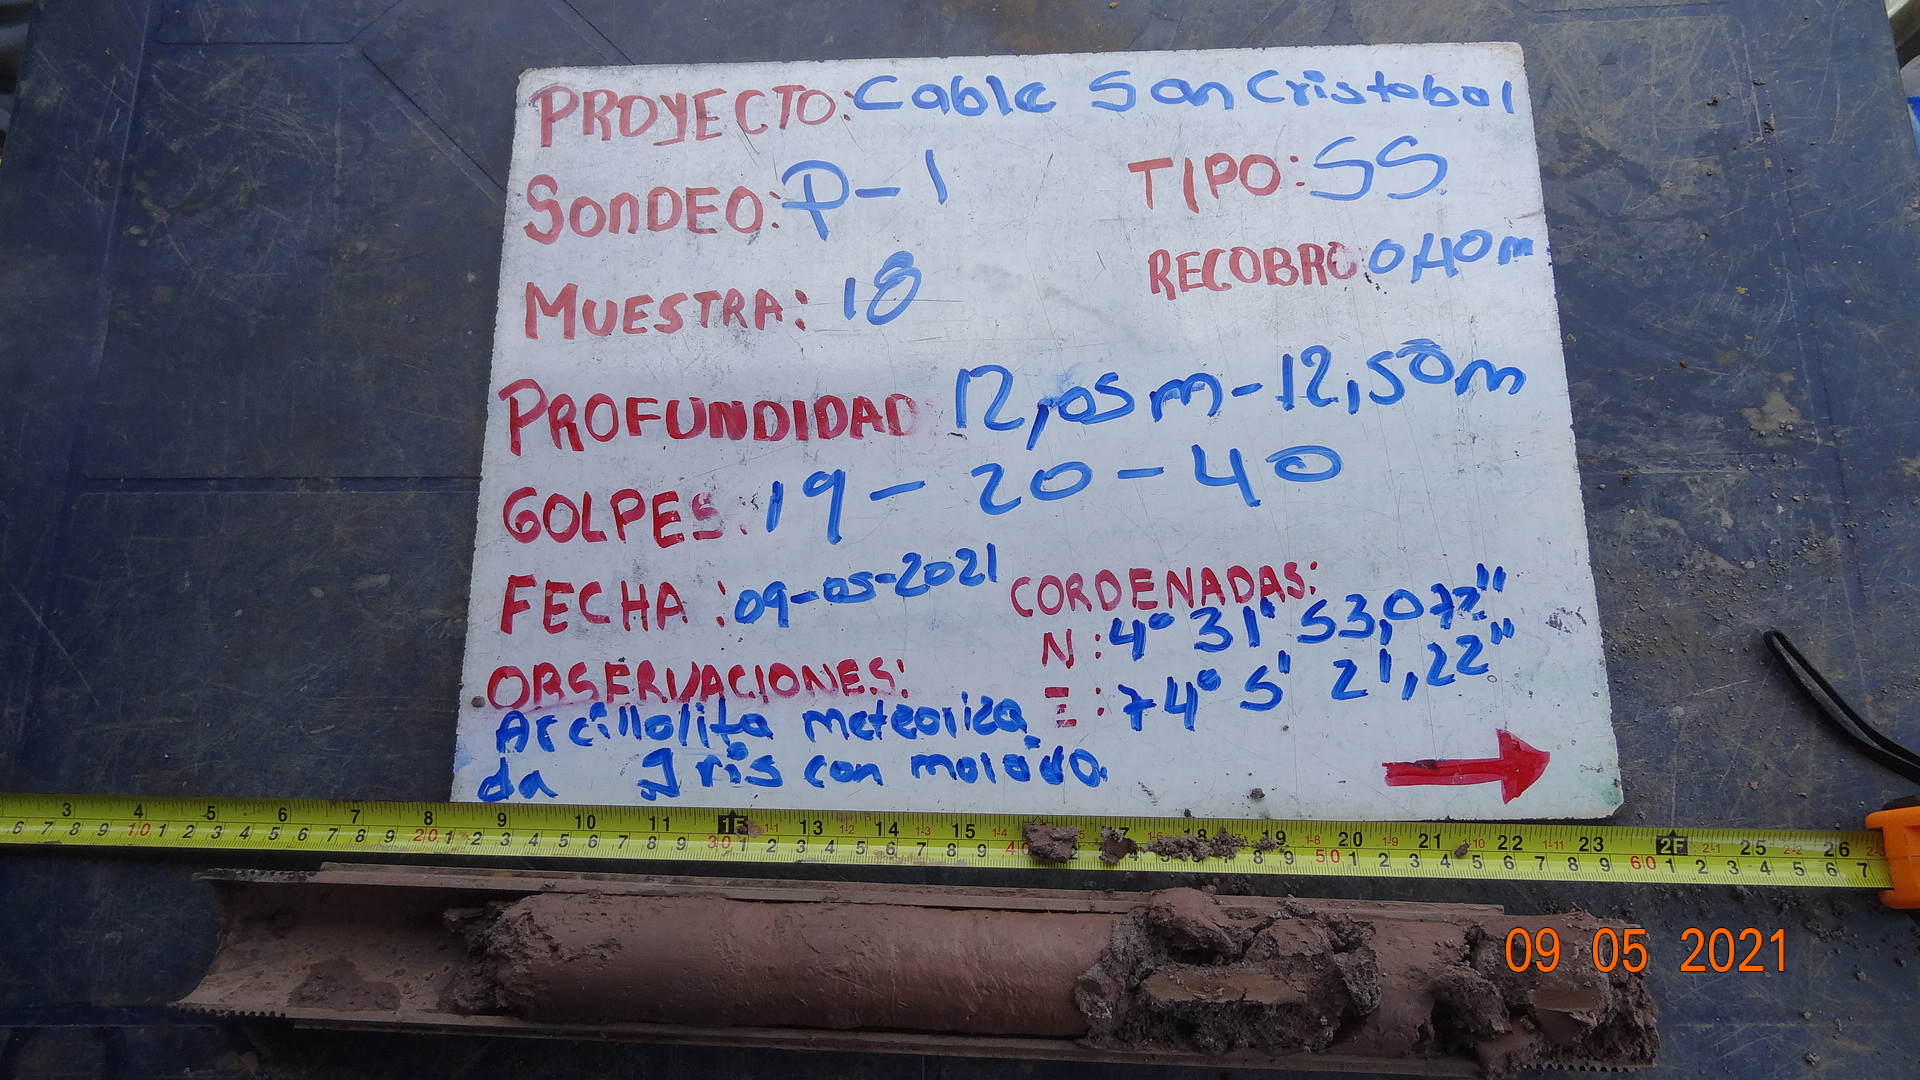 PROYECTO: Cable San Cristobal
SONDEO: P-1 TIPO: SS
MUESTRA: 18 RECOBRO 0,40m
PROFUNDIDAD 12,05m-12,50m
GOLPES: 19-20-40
FECHA: 09-05-2021 CORDENADAS:
N: 4° 31' 53,072"
OBSERVACIONES: E: 74° 5' 21,22"
Arcillolita meteoriza
da gris con morado.
3 4 5 6 7 8 9 10 11 1F 13 14 15 17 18 19 20 21 22 23 2F 25 26
6 7 8 9 10 1 2 3 4 5 6 7 8 9 20 1 2 3 4 5 6 7 8 9 30 1 2 3 4 5 6 7 8 9 8 9 50 1 2 3 4 5 6 7 8 9 60 1 2 3 4 5 6 7
09 05 2021